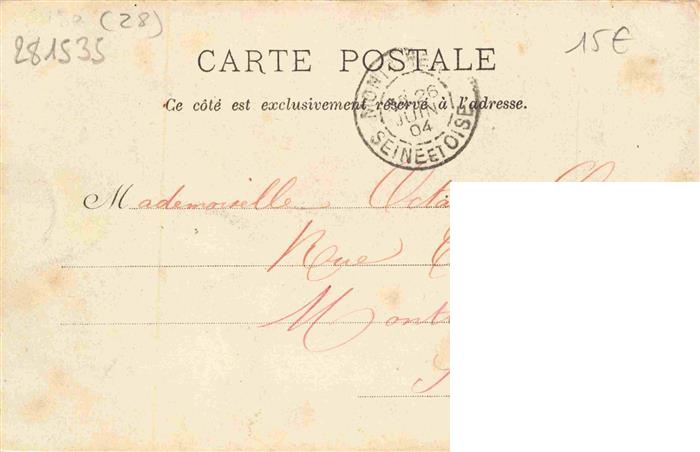 (28)
281535
15€
CARTE POSTALE
Ce côté est exclusivement réservé à l'adresse.
26
JUIN
04
SEINE ET OISE
Mademoiselle
Rue